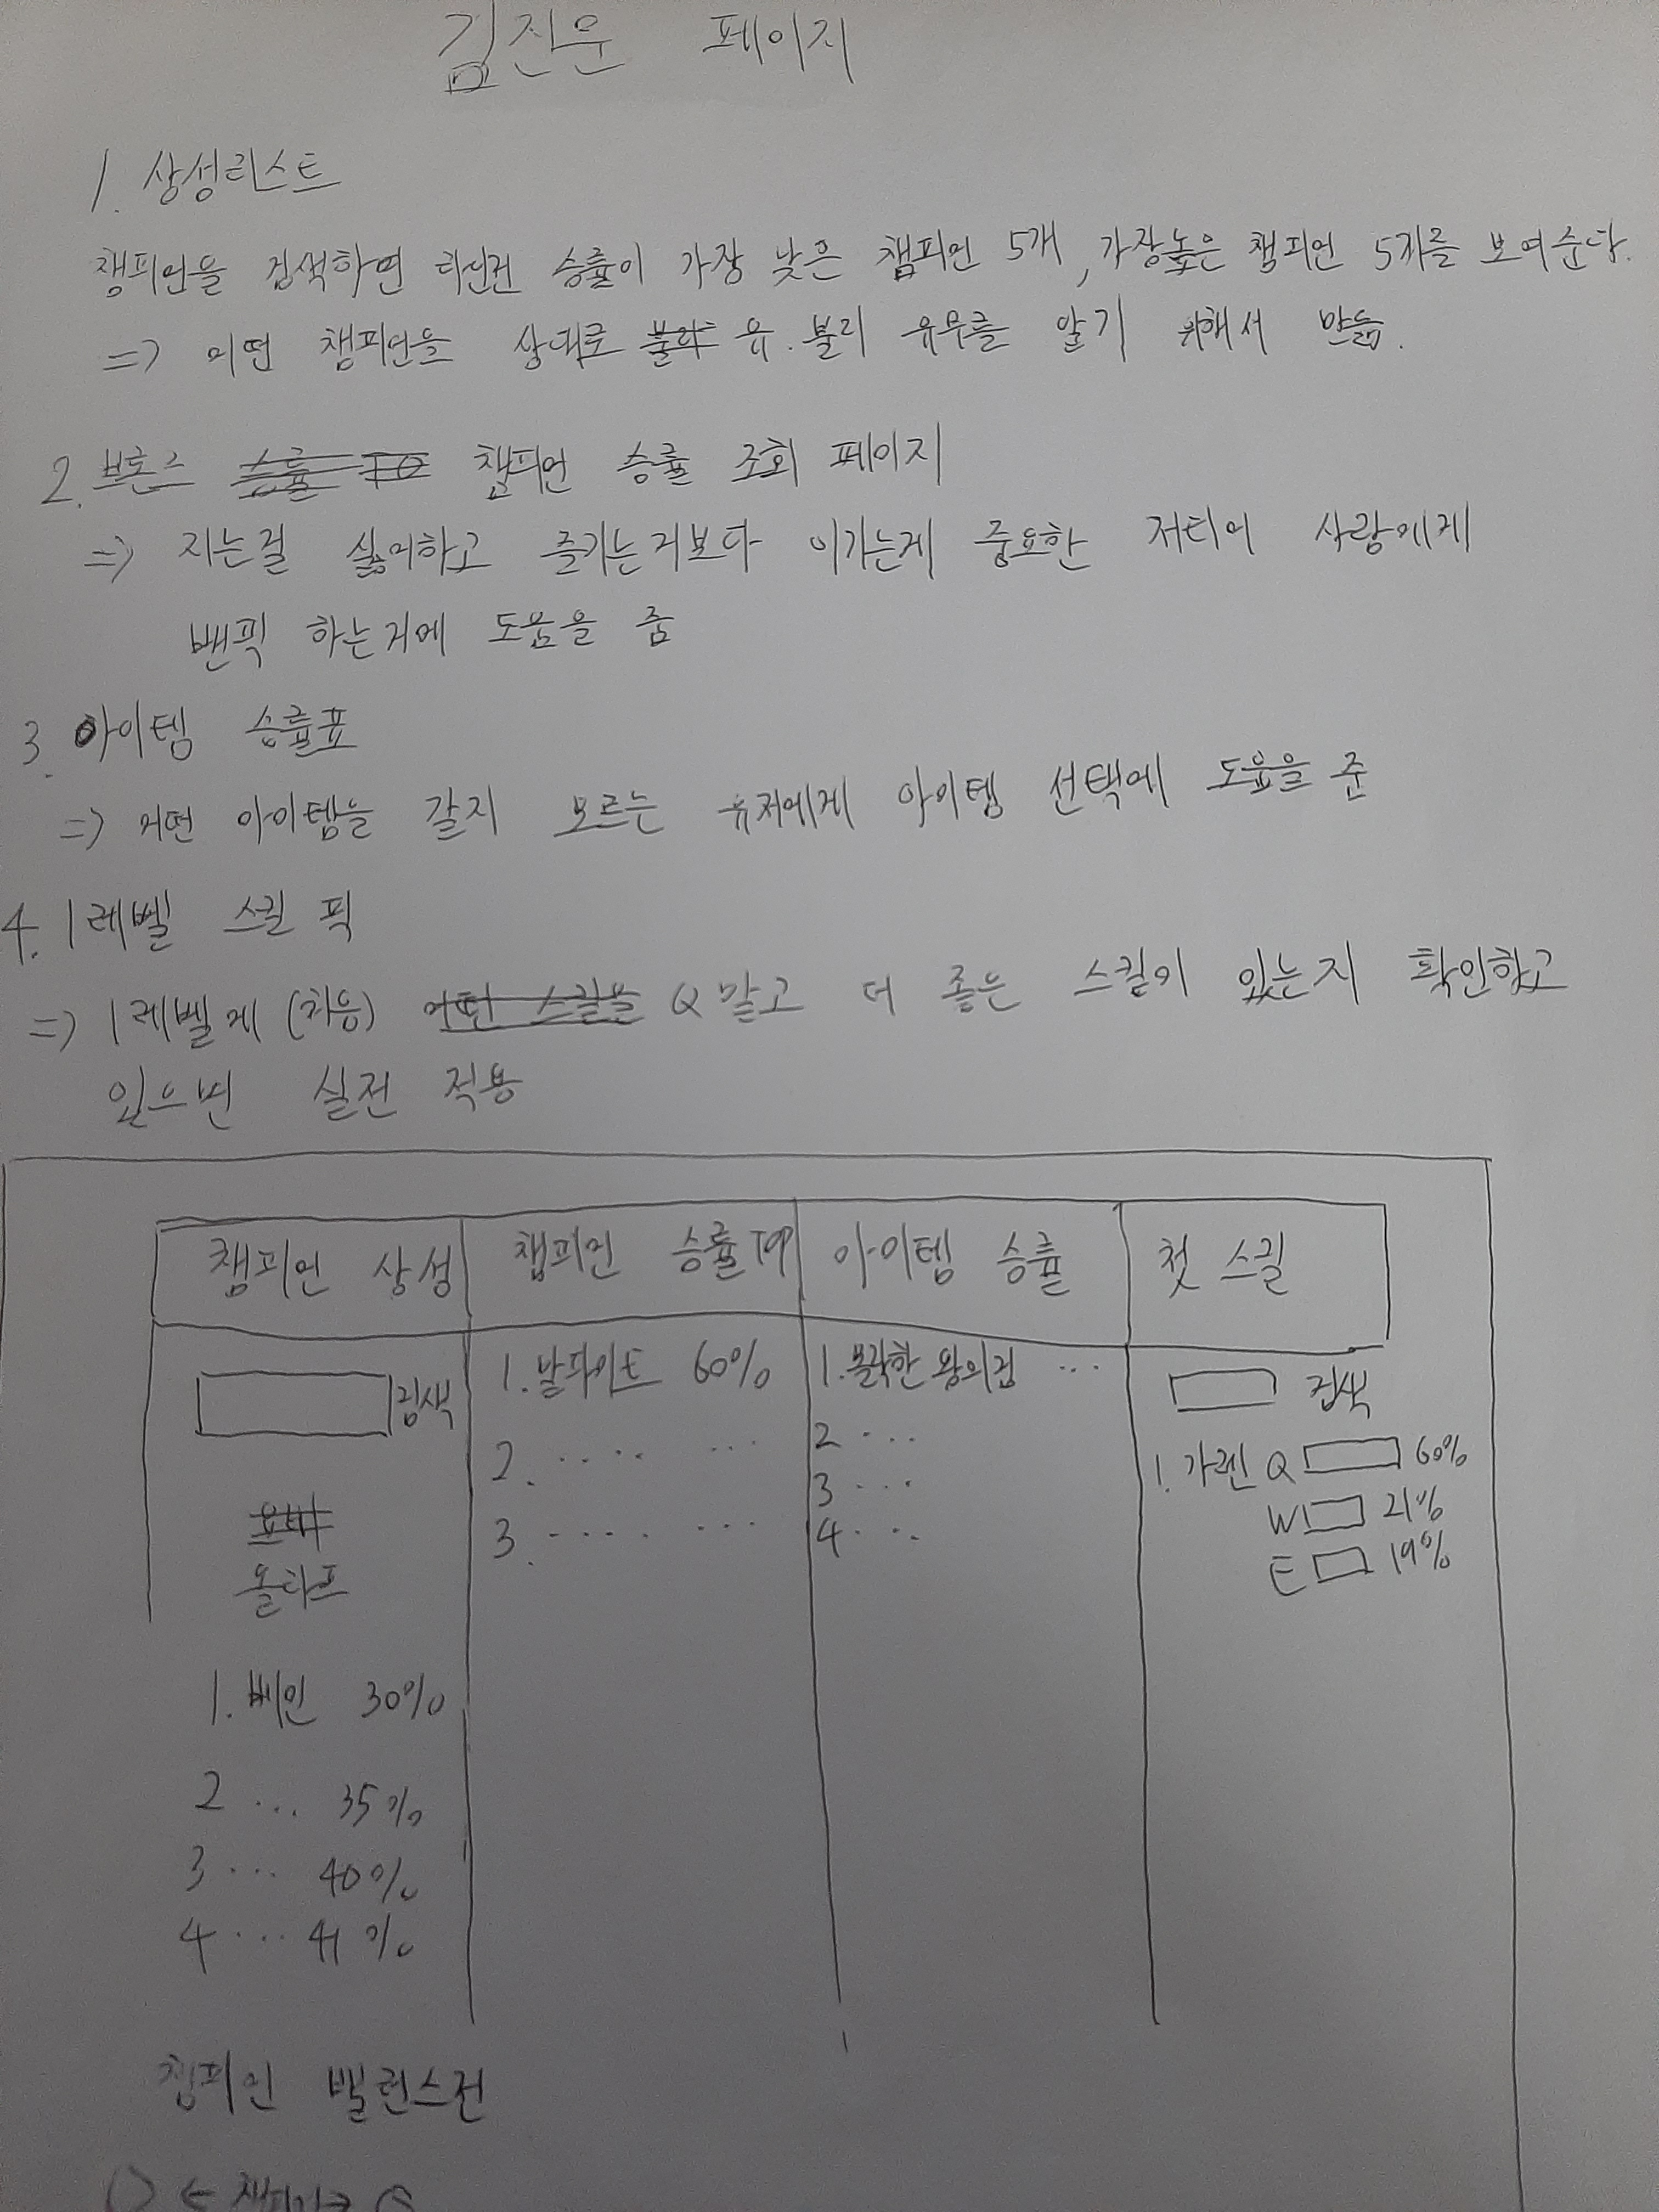 김진운 페이지
1. 상성리스트
챔피언을 검색하면 라인전 승률이 가장 낮은 챔피언 5개, 가장높은 챔피언 5개를 보여준다.
=> 어떤 챔피언을 상대로 불리 유.불리 유무를 알기 위해서 만듦.
2. 브론즈 승률 챔피언 승률 조회 페이지
=> 지는걸 싫어하고 즐기는거보다 이기는게 중요한 저티어 사람에게
밴픽 하는거에 도움을 줌
3. 아이템 승률표
=> 어떤 아이템을 갈지 모르는 유저에게 아이템 선택에 도움을 준
4. 1레벨 스킬 픽
=> 1레벨에 (처음) 어떤 스킬을 Q 말고 더 좋은 스킬이 있는지 확인하고
있으면 실전 적용
챔피언 상성 챔피언 승률 TOP 아이템 승률 첫 스킬
검색
올라프
1. 베인 30%
2 ... 35%
3 ... 40%
4 ... 41%
1. 말파이트 60%
2. .... ...
3. .... ...
1. 몰락한 왕의검 ...
2 ...
3 ...
4 ...
검색
1. 가렌 Q 60%
W 21%
E 19%
챔피언 밸런스전